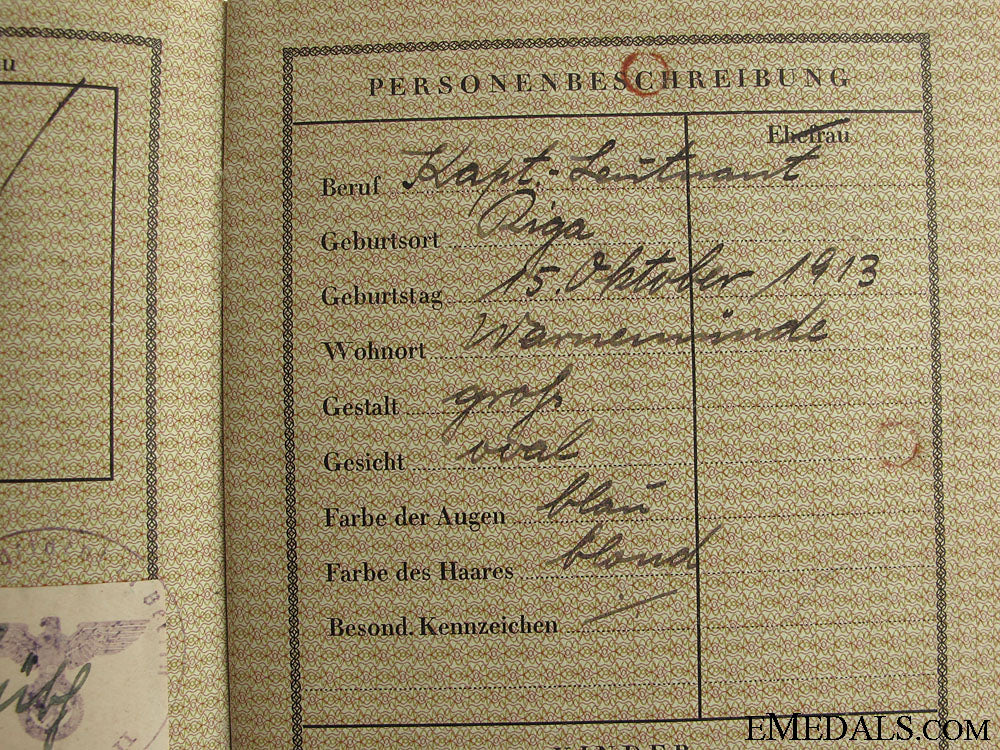 u
PERSONENBESCHREIBUNG
Ehefrau
Beruf Kapt.-Leutnant
Geburtsort Riga
Geburtstag 15. Oktober 1913
Wohnort Warnemünde
Gestalt groß
Gesicht oval
Farbe der Augen blau
Farbe des Haares blond
Besond. Kennzeichen ./.
KINDER
EMEDALS.COM